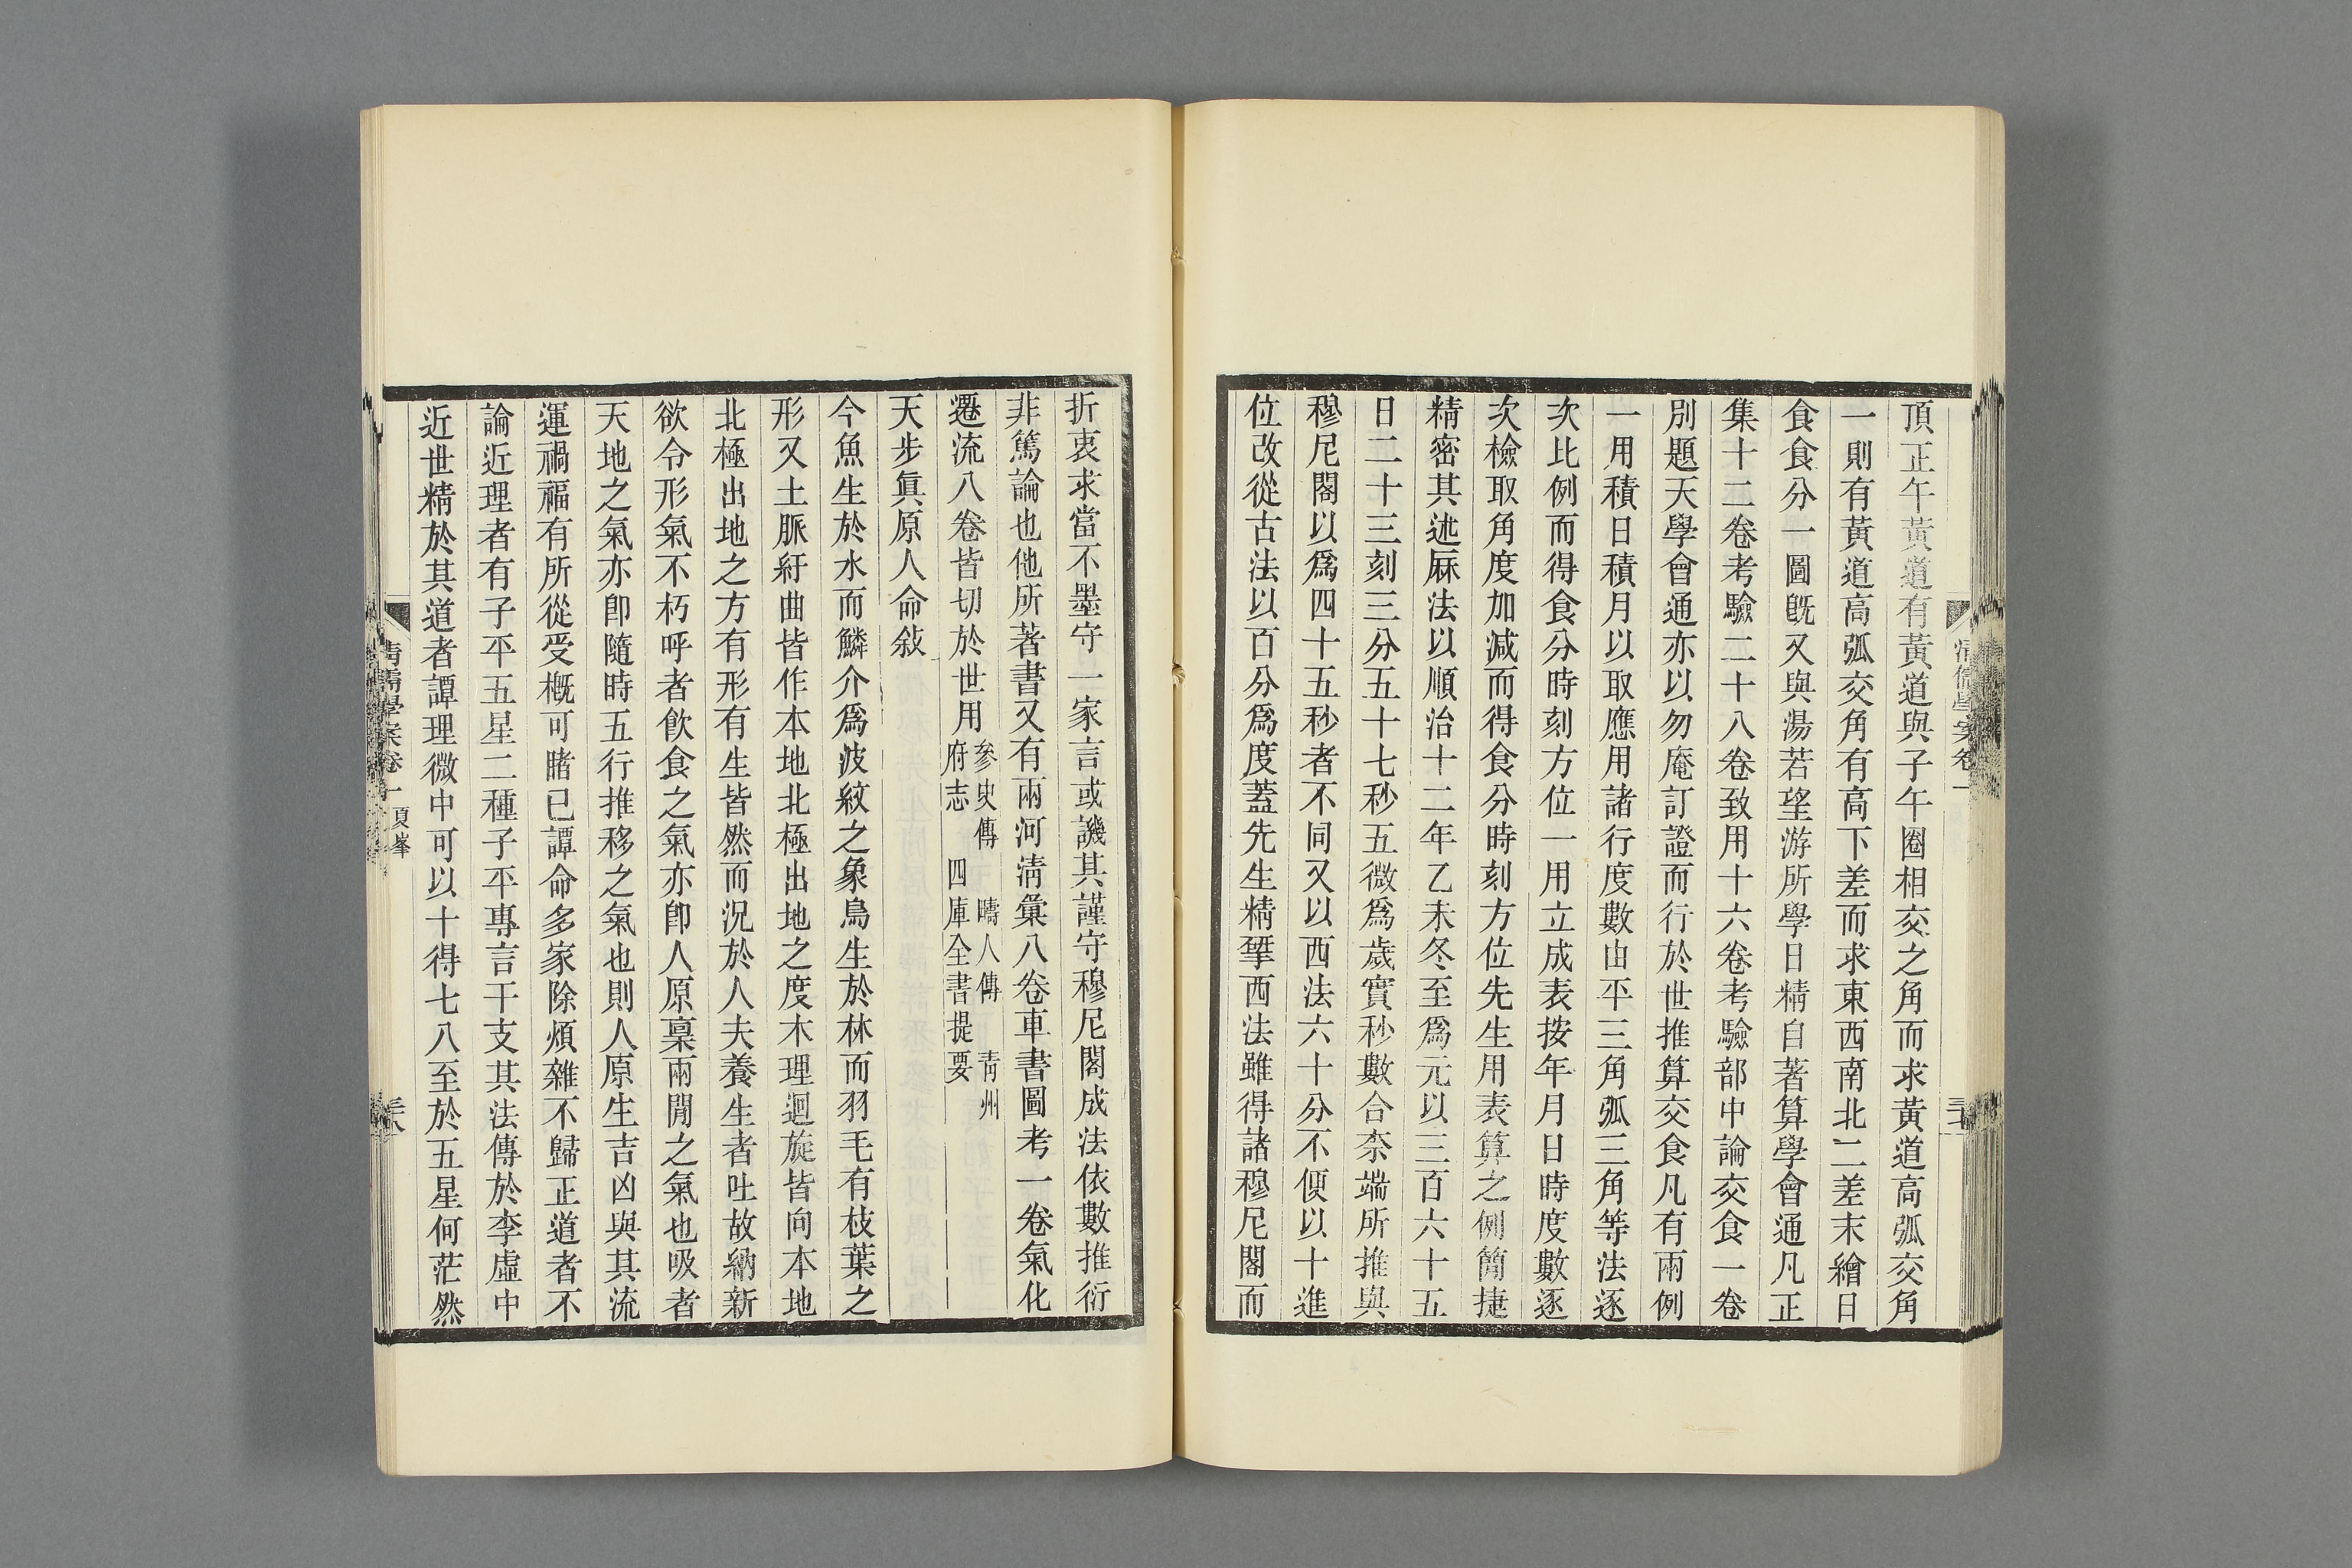 頂正午黃道有黃道與子午圈相交之角而求黃道高弧交角
一則有黃道高弧交角有高下差而求東西南北二差末繪日
食食分一圖旣又與湯若望游所學日精自著算學會通凡正
集十二卷考驗二十八卷致用十六卷考驗部中論交食一卷
別題天學會通亦以勿庵訂證而行於世推算交食凡有兩例
一用積日積月以取應用諸行度數由平三角弧三角等法逐
次比例而得食分時刻方位一用立成表按年月日時度數逐
次檢取角度加減而得食分時刻方位先生用表算之例簡捷
精密其述厤法以順治十二年乙未冬至爲元以三百六十五
日二十三刻三分五十七秒五微爲歲實秒數合柰端所推與
穆尼閣以爲四十五秒者不同又以西法六十分不便以十進
位改從古法以百分爲度蓋先生精揅西法雖得諸穆尼閣而
清儒學案卷一
三十七
折衷求當不墨守一家言或譏其謹守穆尼閣成法依數推衍
非篤論也他所著書又有兩河淸彙八卷車書圖考一卷氣化
遷流八卷皆切於世用
參史傳 疇人傳 靑州
府志 四庫全書提要
天步眞原人命敍
今魚生於水而鱗介爲波紋之象鳥生於林而羽毛有枝葉之
形又土脈紆曲皆作本地北極出地之度木理迴旋皆向本地
北極出地之方有形有生皆然而況於人夫養生者吐故納新
欲令形氣不朽呼者飮食之氣亦卽人原稟兩閒之氣也吸者
天地之氣亦卽隨時五行推移之氣也則人原生吉凶與其流
運禍福有所從受槪可睹已譚命多家除煩雜不歸正道者不
論近理者有子平五星二種子平專言干支其法傳於李虛中
近世精於其道者譚理微中可以十得七八至於五星何茫然
淸儒學案卷一 夏峯
三十八